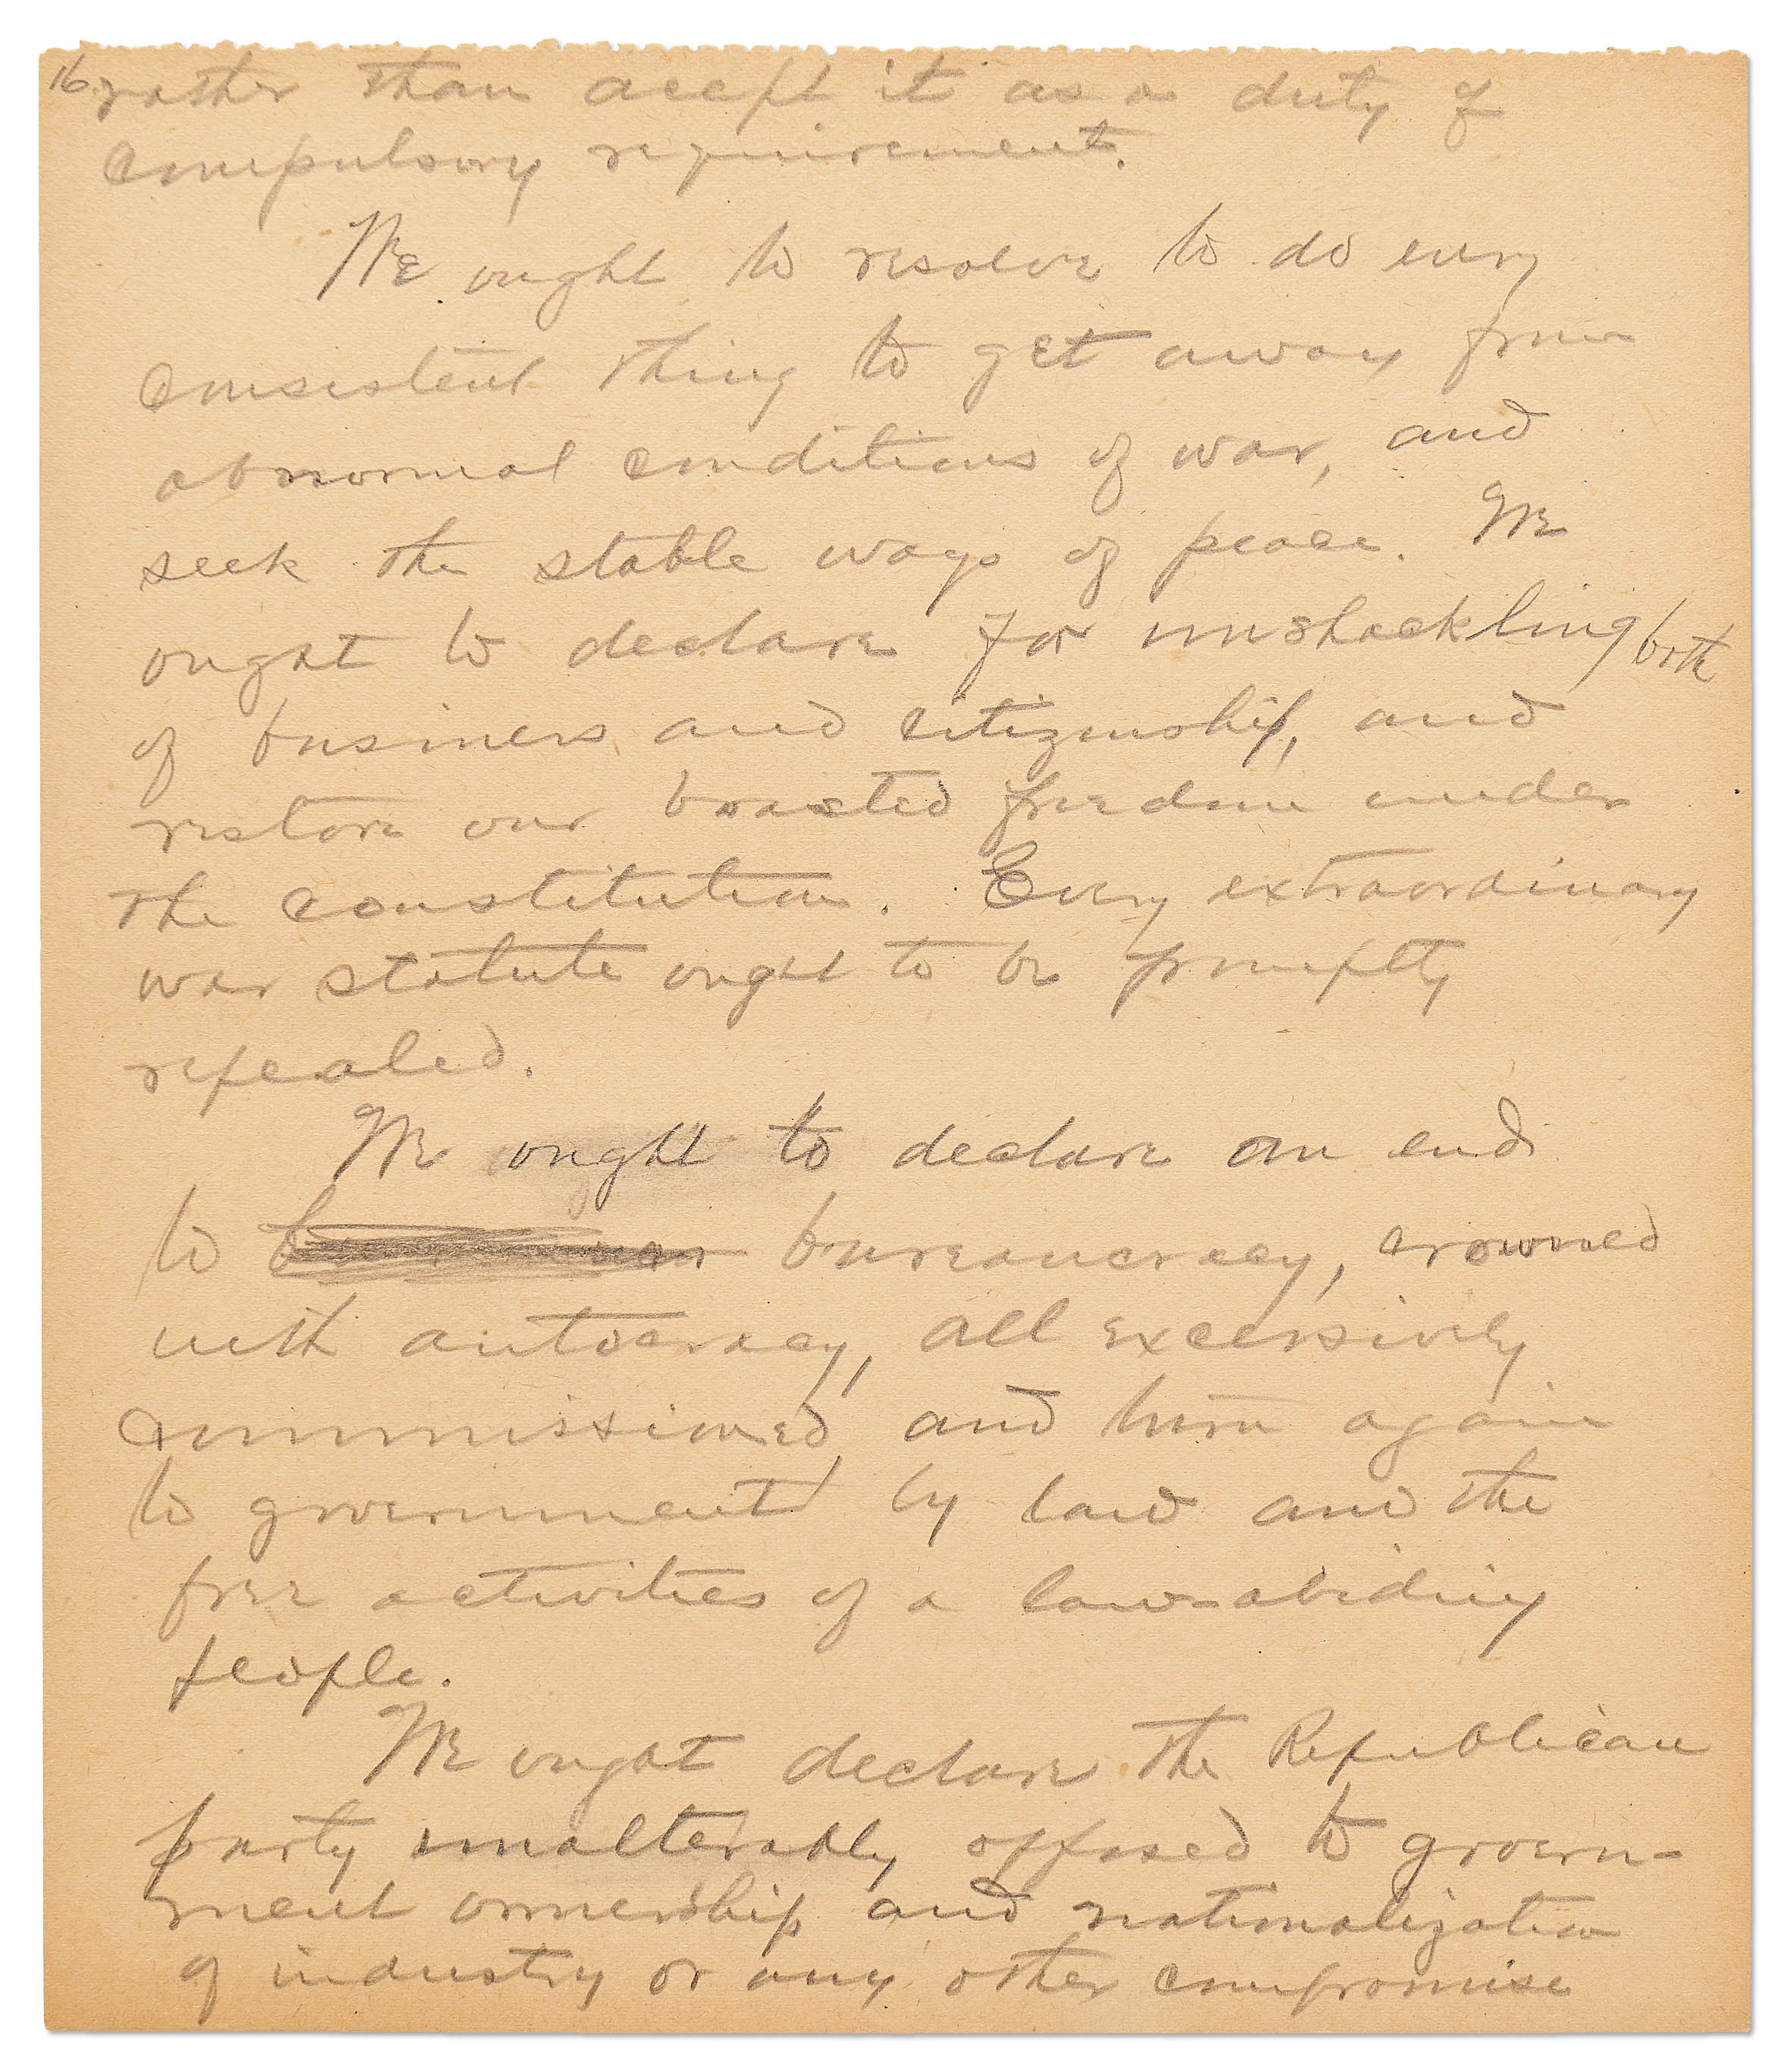 16 rather than accept it as a duty of
compulsory requirement.
We ought to resolve to do every
consistent thing to get away from
abnormal conditions of war, and
seek the stable ways of peace. We
ought to declare for unshackling both
of business and citizenship, and
restore our boasted freedom under
the constitution. Every extraordinary
war statute ought to be promptly
repealed.
We ought to declare an end
to bureaucracy, crowned
with autocracy, all excessively
commissioned, and turn again
to government by law and the
free activities of a law-abiding
people.
We ought declare the Republican
party unalterably opposed to govern-
ment ownership and nationalization
of industry or any other compromise